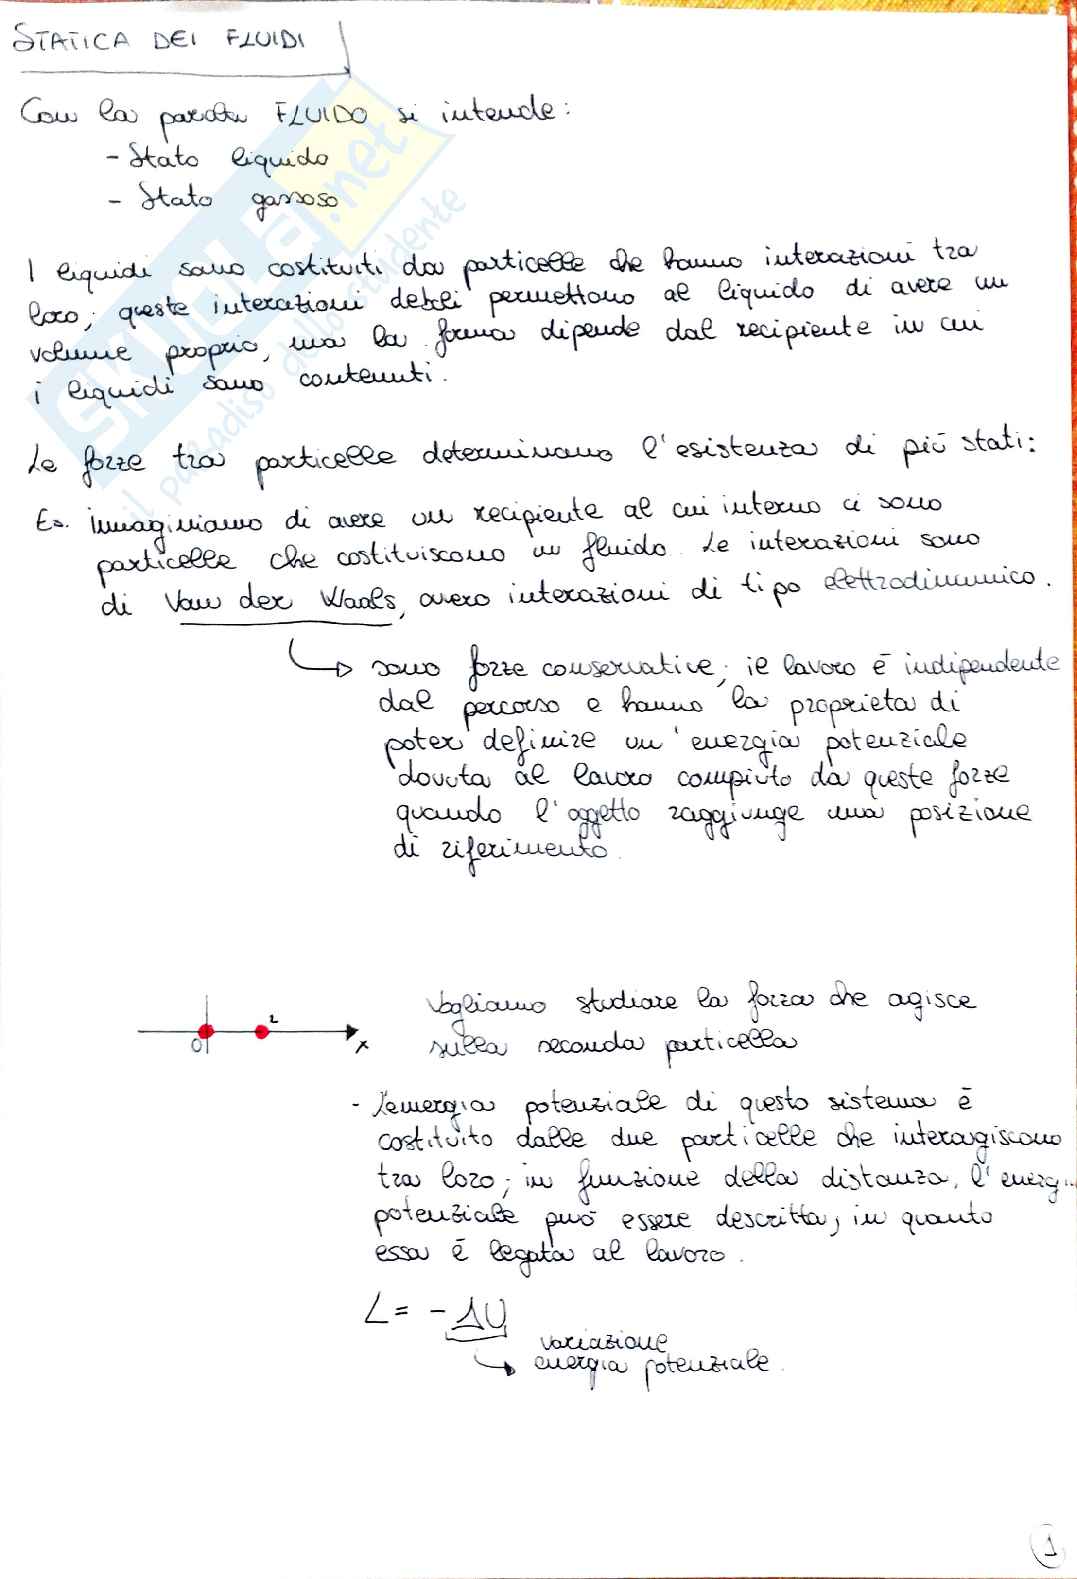 STATICA DEI FLUIDI
Con la parola FLUIDO si intende:
- Stato liquido
- Stato gassoso
I liquidi sono costituiti da particelle che hanno interazioni tra
loro; queste interazioni deboli permettono al liquido di avere un
volume proprio, ma la forma dipende dal recipiente in cui
i liquidi sono contenuti.
Le forze tra particelle determinano l'esistenza di più stati:
Es. immaginiamo di avere un recipiente al cui interno ci sono
particelle che costituiscono un fluido. Le interazioni sono
di Van der Waals, ovvero interazioni di tipo elettrodinamico.
sono forze conservative; il lavoro è indipendente
dal percorso e hanno la proprietà di
poter definire un'energia potenziale
dovuta al lavoro compiuto da queste forze
quando l'oggetto raggiunge una posizione
di riferimento.
Vogliamo studiare la forza che agisce
sulla seconda particella
O 2 x
- L'energia potenziale di questo sistema è
costituito dalle due particelle che interagiscono
tra loro; in funzione della distanza, l'energ..
potenziale può essere descritta, in quanto
essa è legata al lavoro.
L = - ΔU
variazione
energia potenziale.
1
SKUOLA.net
il paradiso dello studente